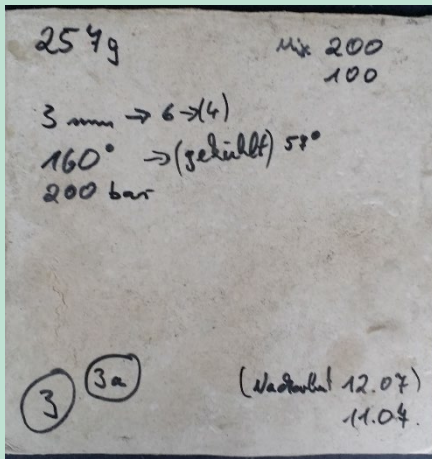 257g
Mix 200
100
3 mm → 6 → (4)
160° → (gekühlt) 57°
200 bar
3 3a
(12.07)
11.07.